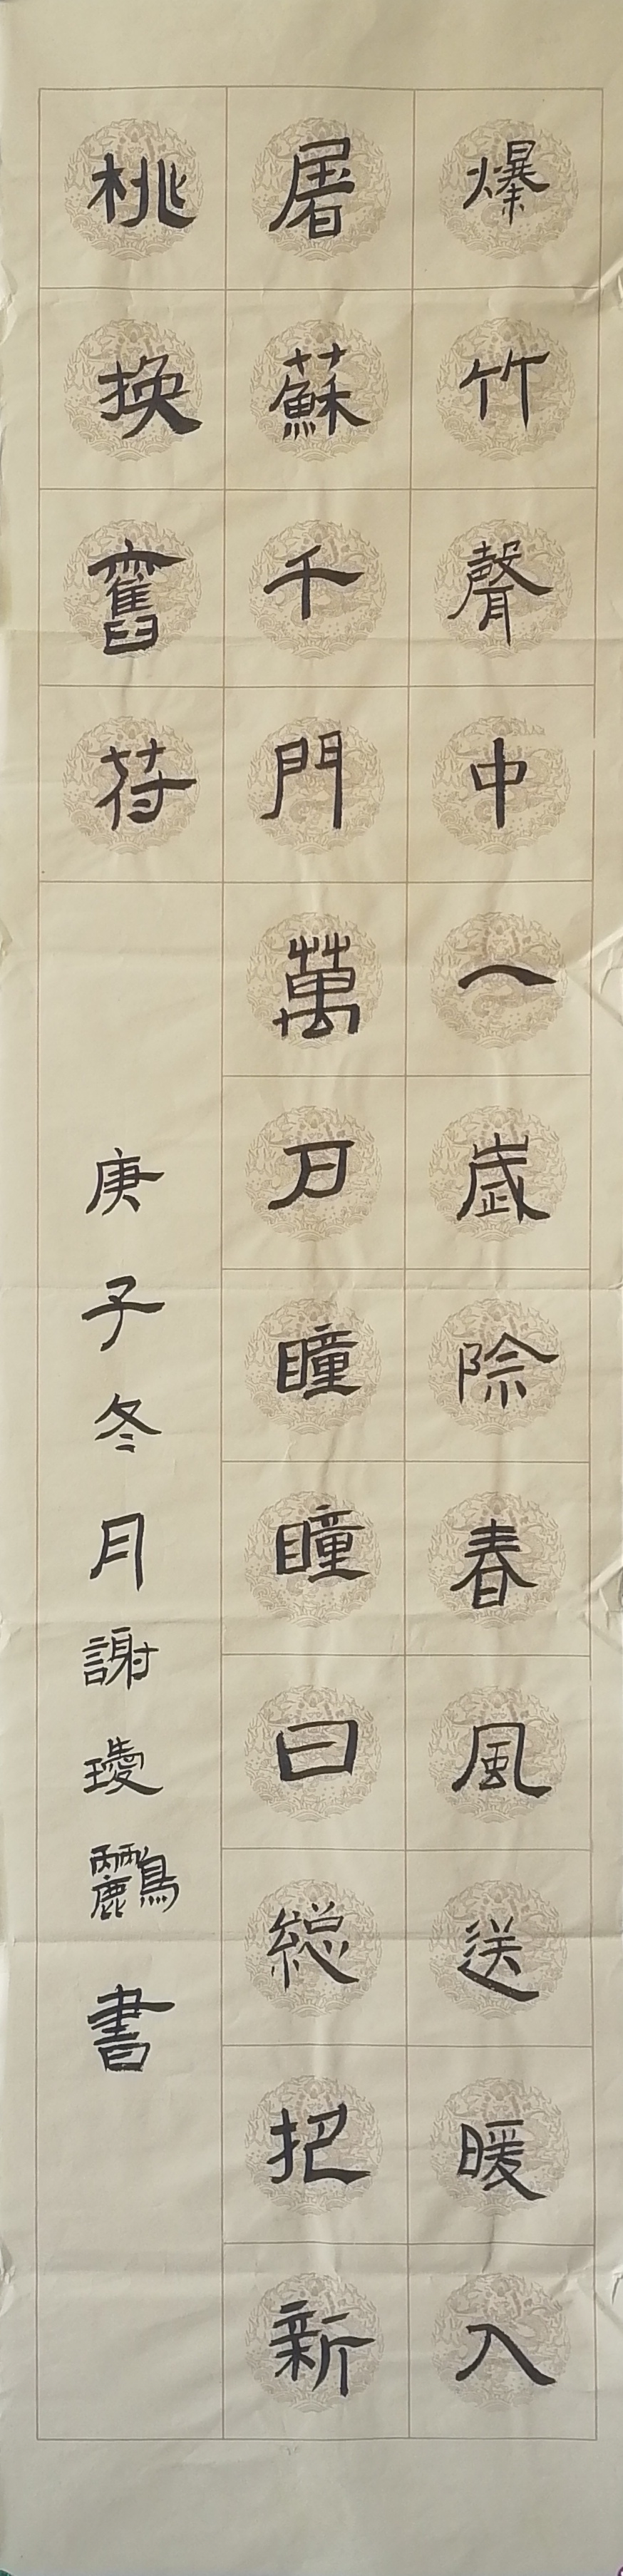 爆竹聲中一歲除春風送暖入
屠蘇千門萬戶瞳瞳日總把新
桃換舊符
庚子冬月謝瓊鸝書